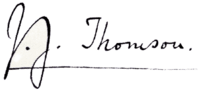 J.J. Thomson.